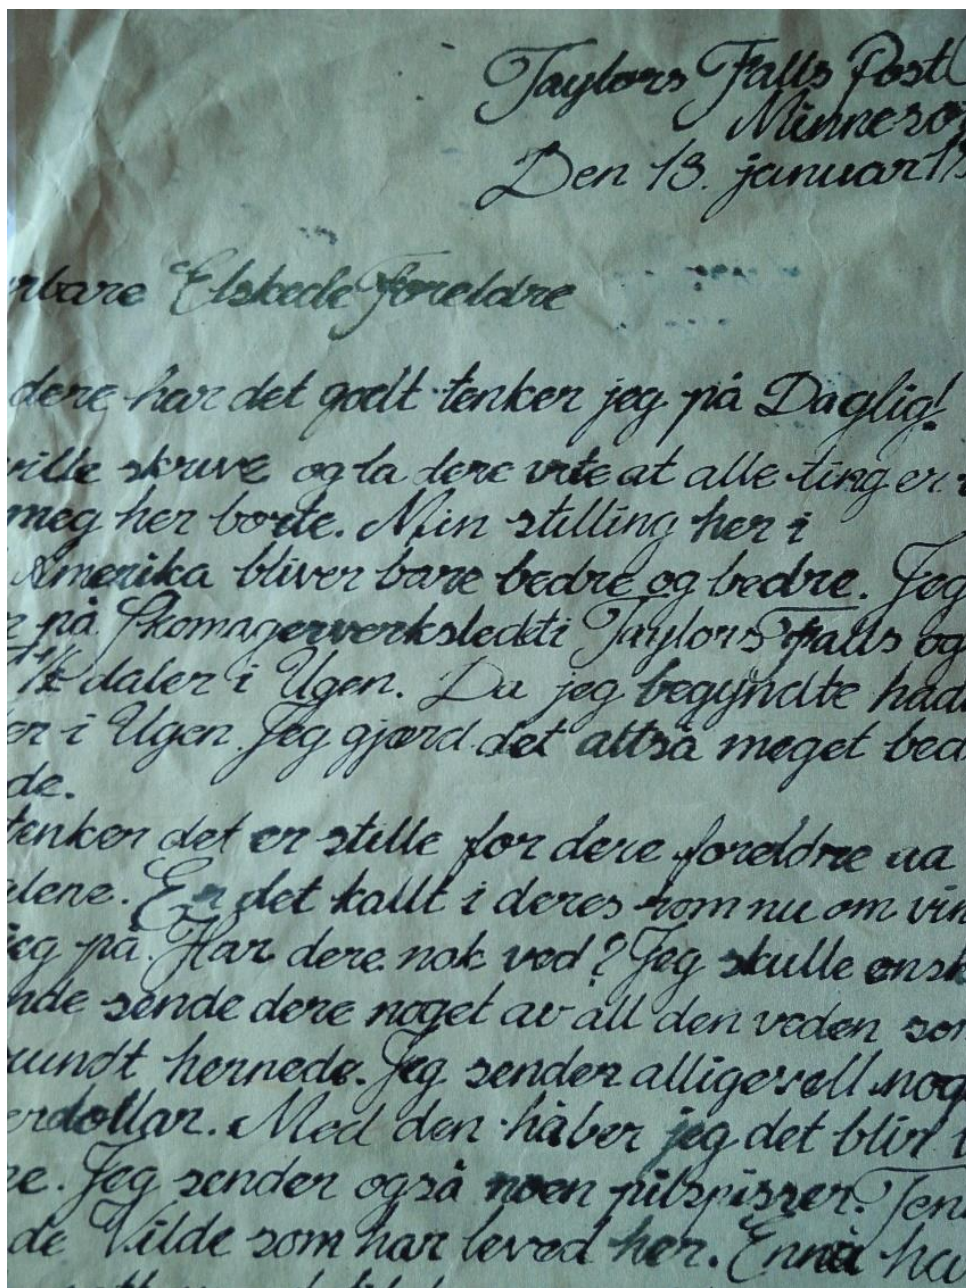 Taylors Falls Post
Minneso
Den 13. januar 1
rbare Elskede Foreldre
dere har det godt tenker jeg på Daglig!
ville skrive og la dere vite at alle ting er
meg her borte. Min stilling her i
Amerika bliver bare bedre og bedre. Jeg
på Skomagerverkstedet i Taylors Falls og
daler i Ugen. Da jeg begyndte had
er i Ugen. Jeg gjørd det altså meget bed
de.
tenker det er stille for dere foreldre aa
alene. Er det kallt i deres rom nu om vin
jeg på. Har dere nok ved? Jeg skulle ønsk
nde sende dere noget av all den veden som
rundt hernede. Jeg sender alligevell nog
erdollar. Med den håber jeg det blir
e. Jeg sender også noen pilspisser. Ten
de Vilde som har leved her. Ennå ha